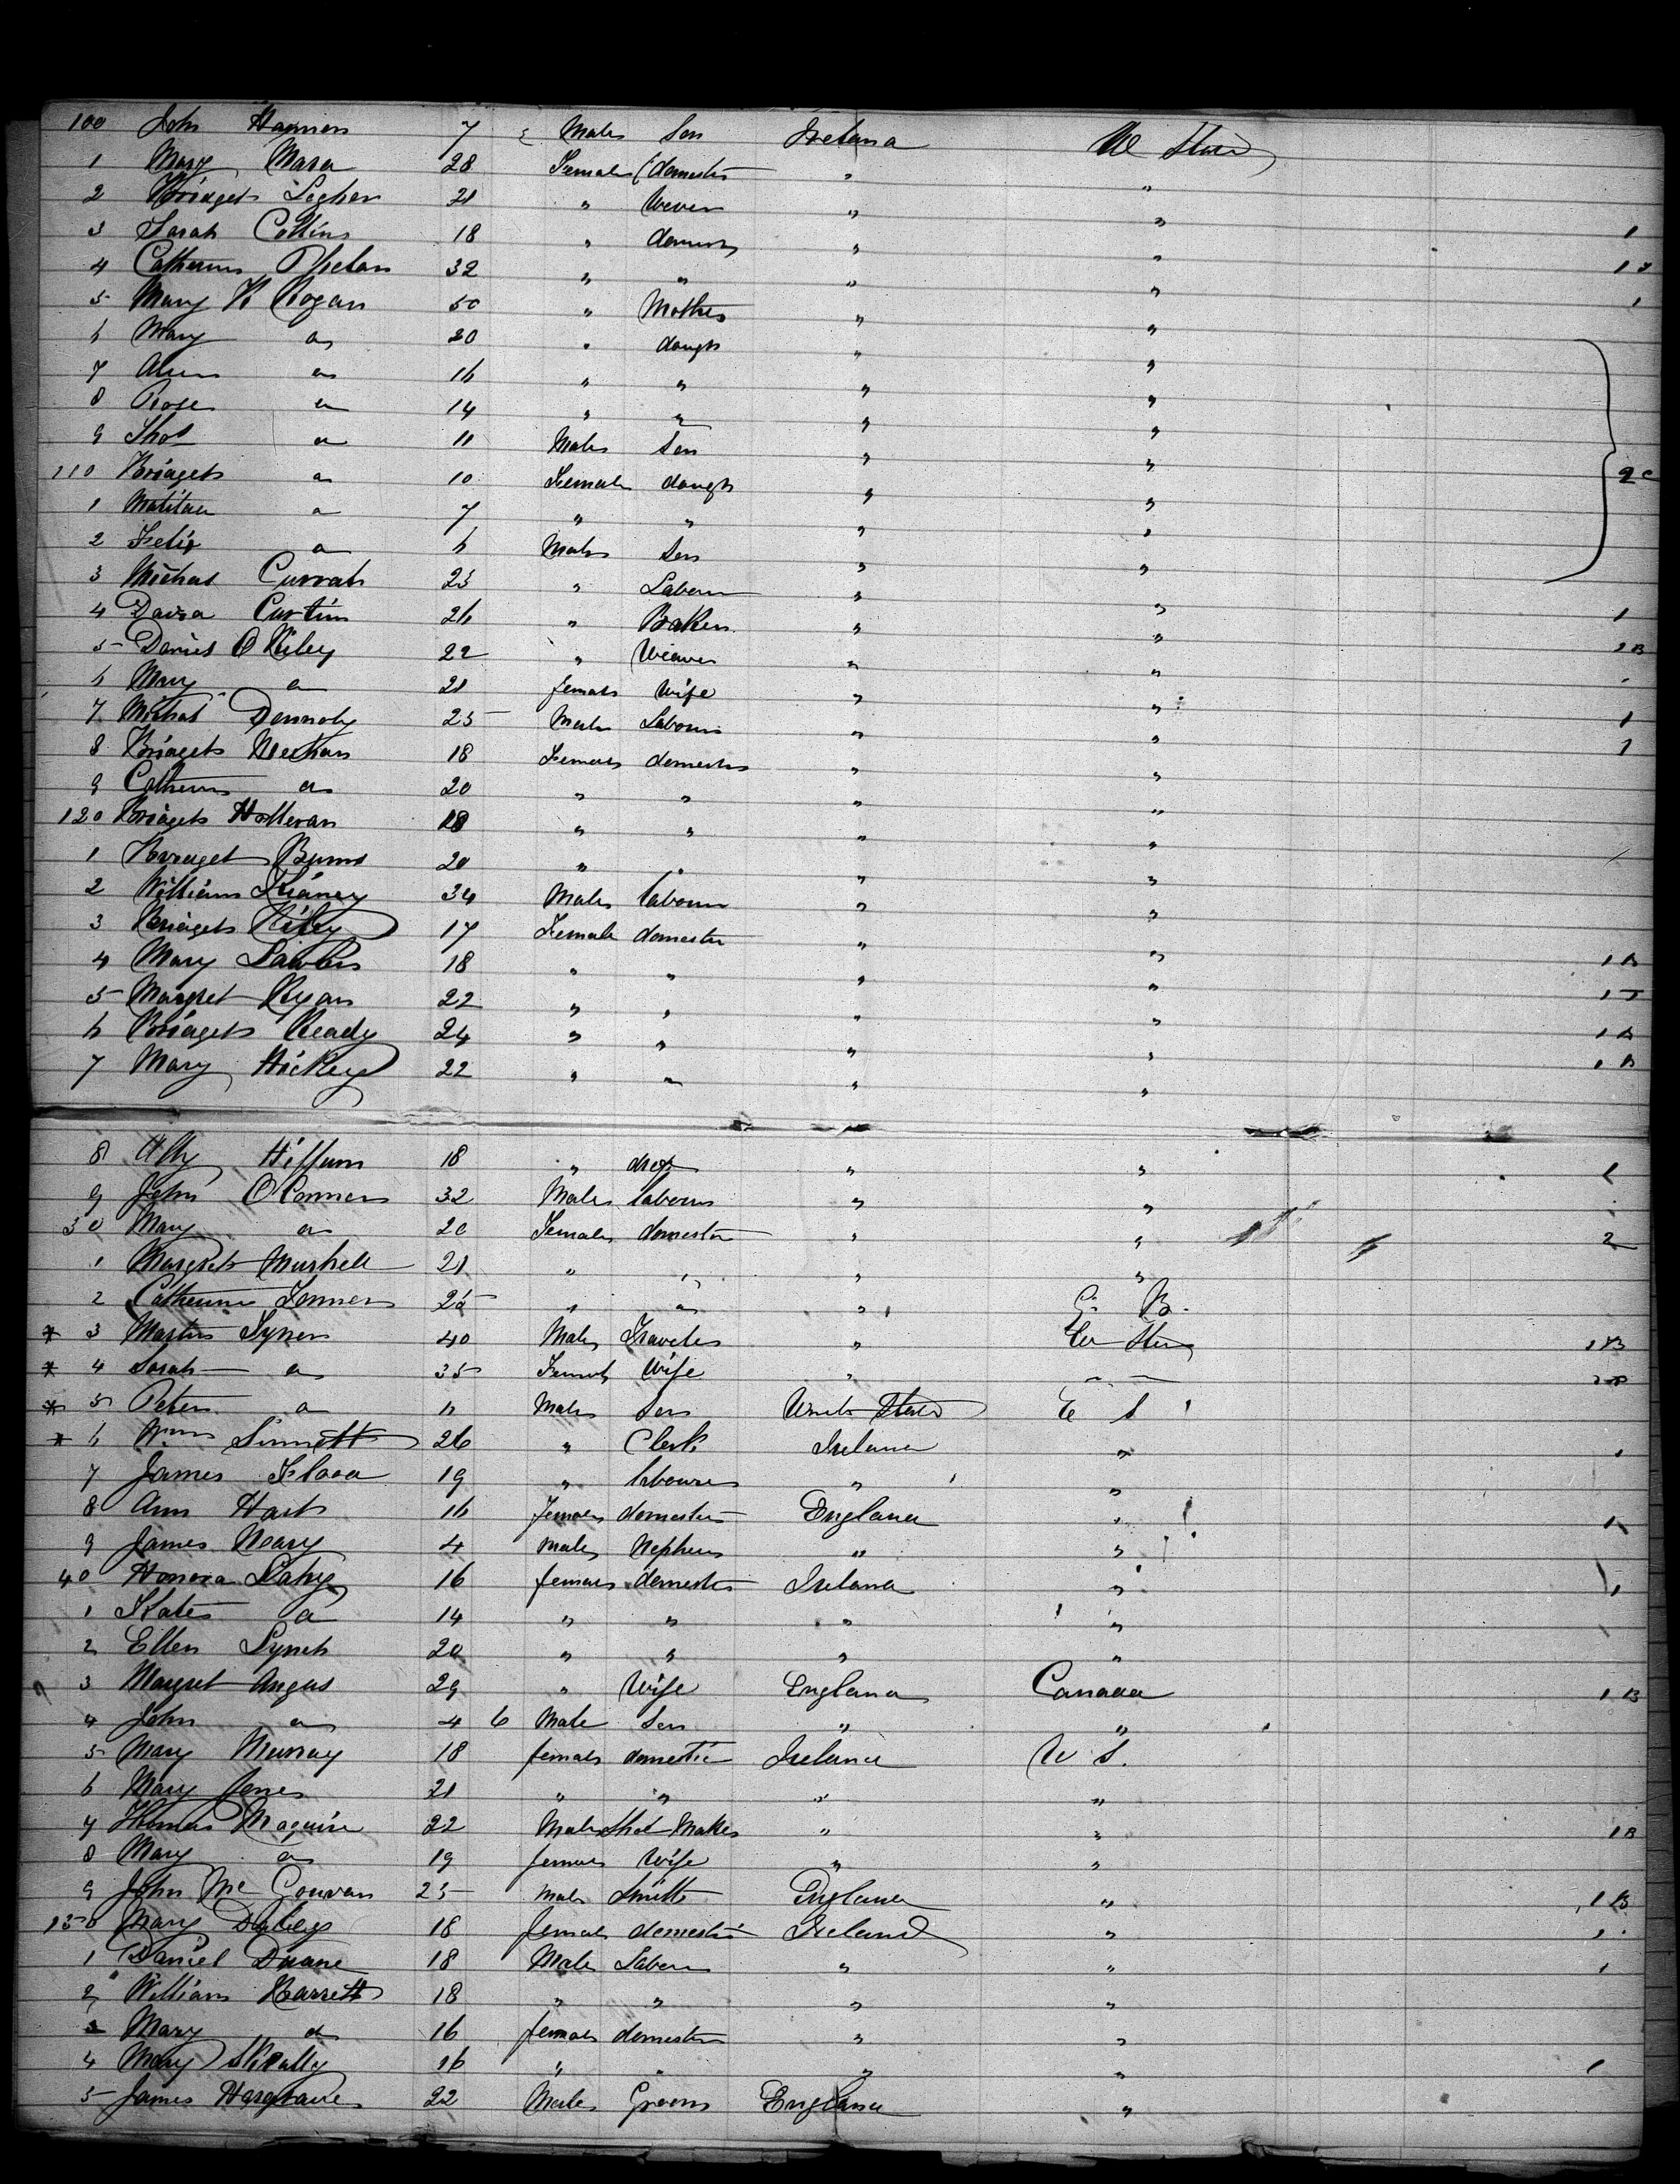 100 John Hannon 7 Male Son Ireland U States
1 Mary Mara 28 Female domestic " "
2 Bridget 21 " Wever " "
3 Sarah Collins 18 " domestic " " 1
4 Catherine Phelan 32 " " " " 1
5 Mary Hogan 50 " Mother " " 1
6 Mary do 20 " daugh " "
7 Ann do 16 " " " "
8 Rose do 14 " " " "
9 Thos do 11 Male Son " "
110 Bridget do 10 Female daugh " " 9
1 Matilda do 7 " " " "
2 Felix do 6 Male Son " "
3 Michal Curran 23 " Labour " "
4 David Curtin 26 " Baker " " 1
5 Daniel O Riley 22 " Weaver " " 1 B
6 Mary do 21 female Wife " "
7 Michal Dennoly 25 Male Labour " " 1
8 Bridget Meehan 18 Female domestic " " 1
9 Catherine do 20 " " " "
120 Bridget Halleran 18 " " " "
1 Bridget Burns 20 " " " "
2 William 34 Male labour " "
3 Bridget Riley 17 Female domestic " "
4 Mary Lawler 18 " " " " 1 B
5 Margret Ryan 22 " " " " 1
6 Bridget Ready 24 " " " " 1 B
7 Mary Hickey 22 " " " " 1 B
8 18 " " " 1
9 John O Conner 32 Male labour " "
30 Mary do 20 Female domestic " " 2
1 Margret 21 " " " "
2 Catherine Conner 25 " " " G. B.
* 3 Martin Tyner 40 Male Traveler " U States 1 B
* 4 Sarah do 35 Female Wife "
* 5 Peter do 11 Male Son United States U S
* 6 Wm Sinnett 26 " Clerk Ireland " 1
7 James Flood 19 " labourer " "
8 Ann Hart 16 female domestic England " 1
9 James Neary 4 male Nephew " "
40 Honora Lahy 16 female domestic Ireland " 1
1 Kate do 14 " " " "
2 Ellen Lynch 20 " " " "
3 Margret Angus 29 " Wife England Canada 1 B
4 John do 4 6 Male Son " "
5 Mary Murray 18 female domestic Ireland U S.
6 Mary Jones 21 " " " "
7 Thomas Maguire 22 Male Shoe Maker " " 1 B
8 Mary do 19 female Wife " "
9 John Mc Gouvan 25 male Smith England " 1 B
150 Mary 18 female domestic Ireland " 1
1 Daniel Duane 18 Male Labour " " 1
2 William Barrett 18 " " " "
3 Mary do 16 female domestic " "
4 Mary Skally 16 " " " " 1
5 James Hargrave 22 Male Groom England "